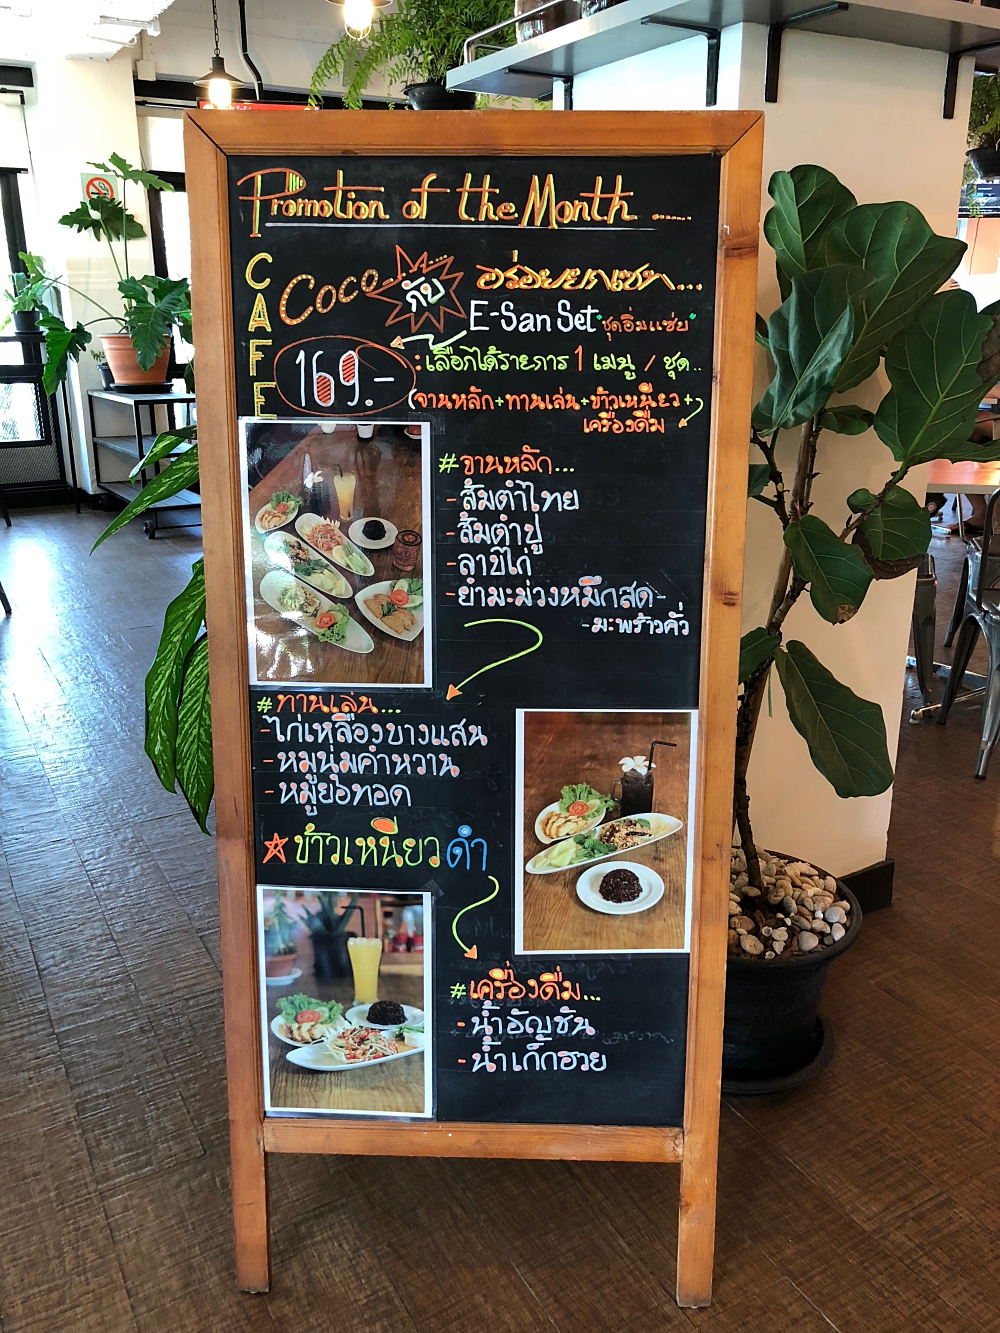 Promotion of the Month ......
CAFE
Coco......... กับ อร่อยยกเซท...
E-San Set "ชุดอิ่มแซ่บ"
169.-
: เลือกได้รายการ 1 เมนู / ชุด..
(จานหลัก+ทานเล่น+ข้าวเหนียว+
เครื่องดื่ม
#จานหลัก...
-ส้มตำไทย
-ส้มตำปู
-ลาบไก่
-ยำมะม่วงหมึกสด-
-มะพร้าวคั่ว
#ทานเล่น...
-ไก่เหลืองบางแสน
-หมูนุ่มคำหวาน
-หมูยอทอด
ข้าวเหนียวดำ
#เครื่องดื่ม...
-น้ำอัญชัน
-น้ำเก๊กฮวย